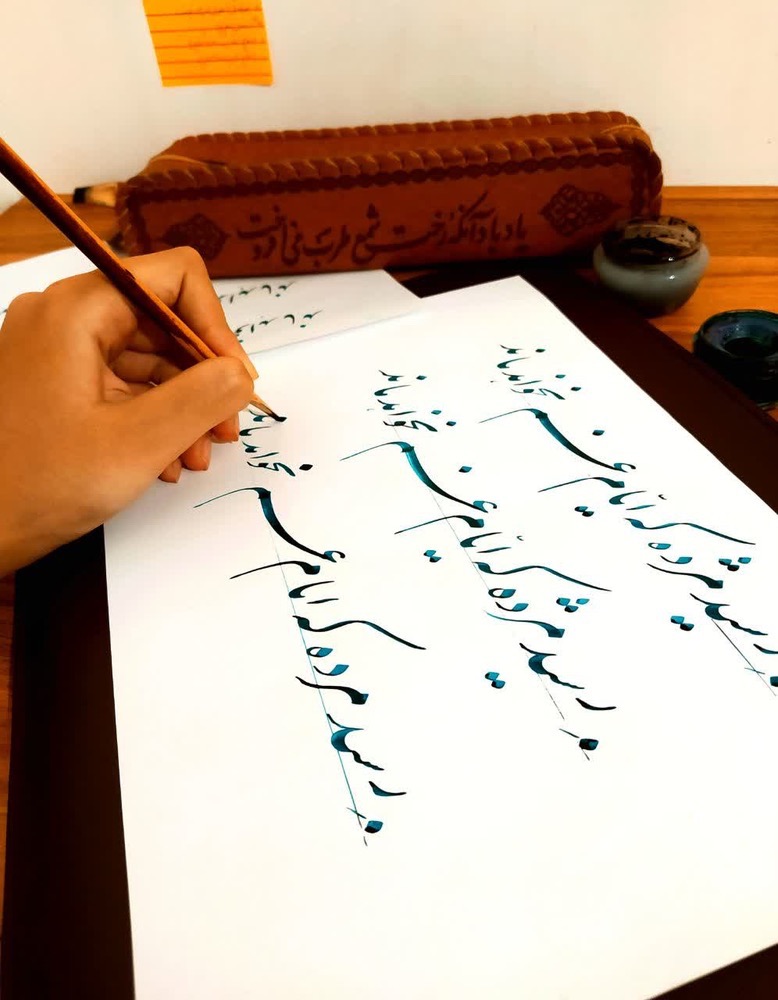 یاد باد آنکه رخت شمع طرب می افروخت
رسید مژده که ایام غم نخواهد ماند
رسید مژده که ایام غم نخواهد ماند
رسید مژده که ایام غم نخواهد ماند